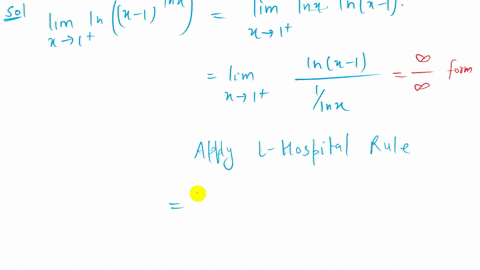 Sol lim x→1⁺ ln((x-1)^lnx) = lim x→1⁺ lnx · ln(x-1).
= lim x→1⁺ ln(x-1) / (1/lnx) = ∞/∞ form
Apply L-Hospital Rule
=